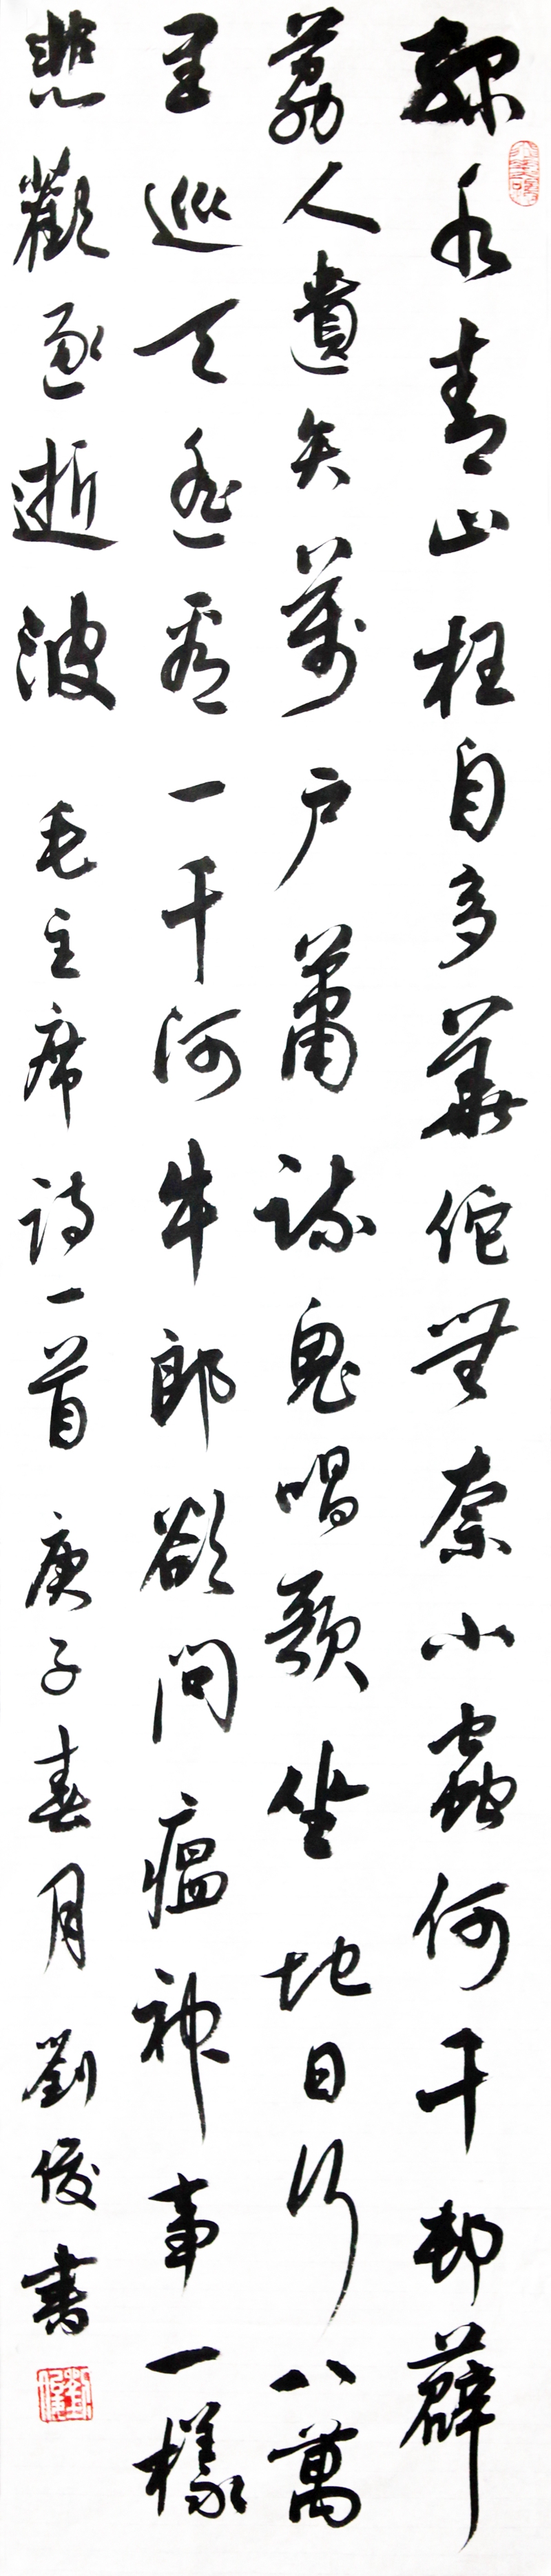 綠水青山枉自多華佗無奈小蟲何千邨薜
荔人遺矢萬户蕭疏鬼唱歌坐地日行八萬
里巡天遙看一千河牛郎欲問瘟神事一樣
悲歡逐逝波 毛主席詩一首 庚子春月 劉俊書